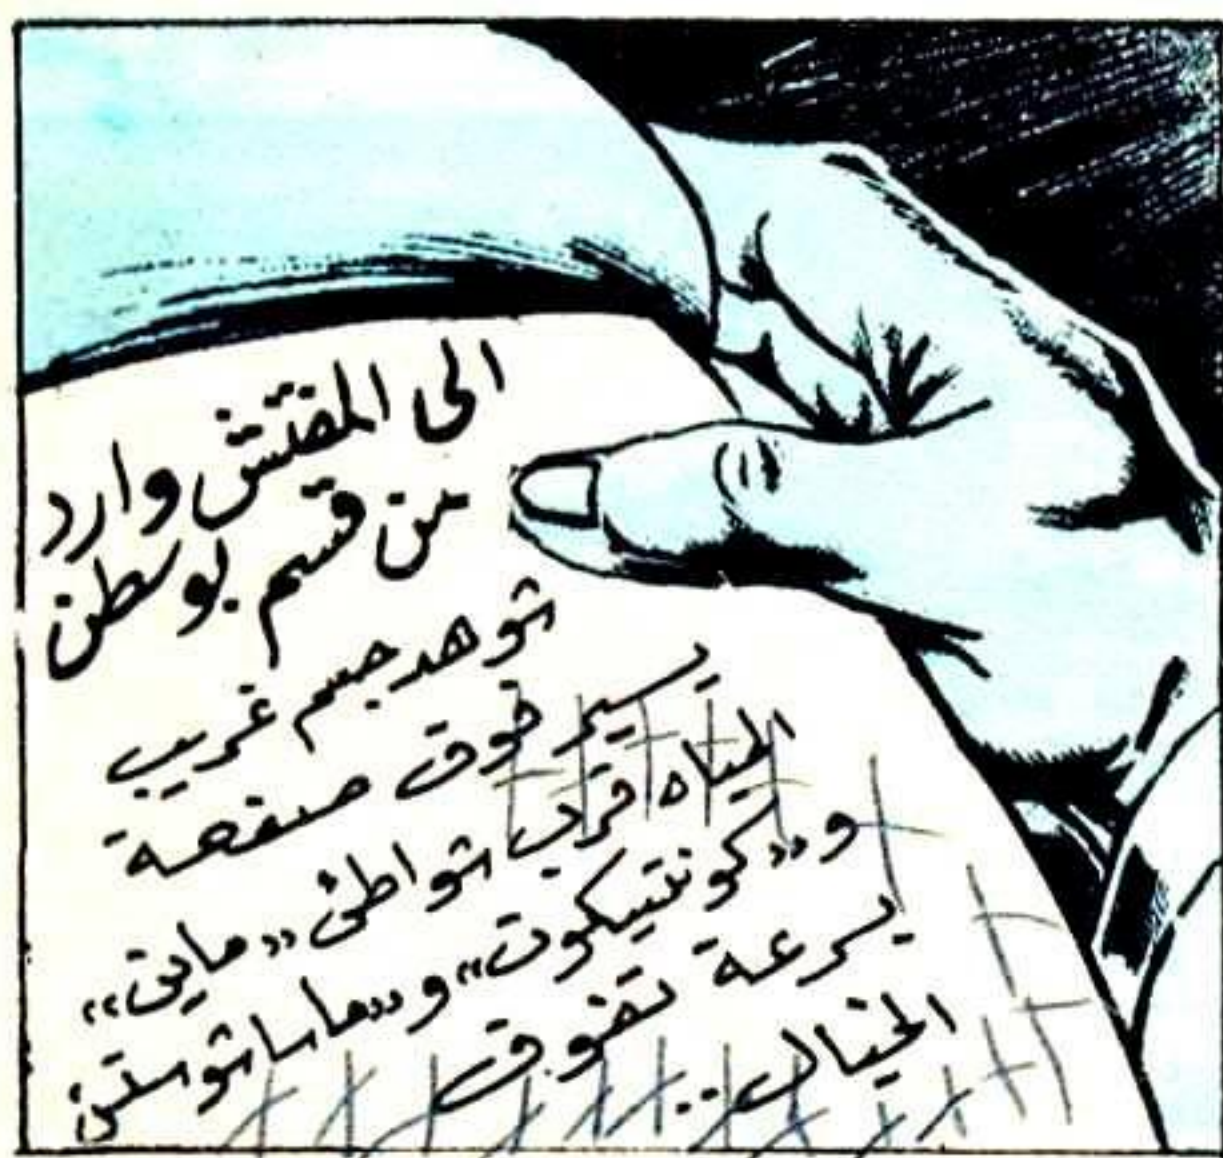 الى المفتش وارد
من قسم بوسطن
شوهد جسم غريب
يسير فوق صفحة
المياه قرب شواطئ «ماين»
و«كونتيكوت» و«ماساشوستن
بسرعة تفوق
الخيال..